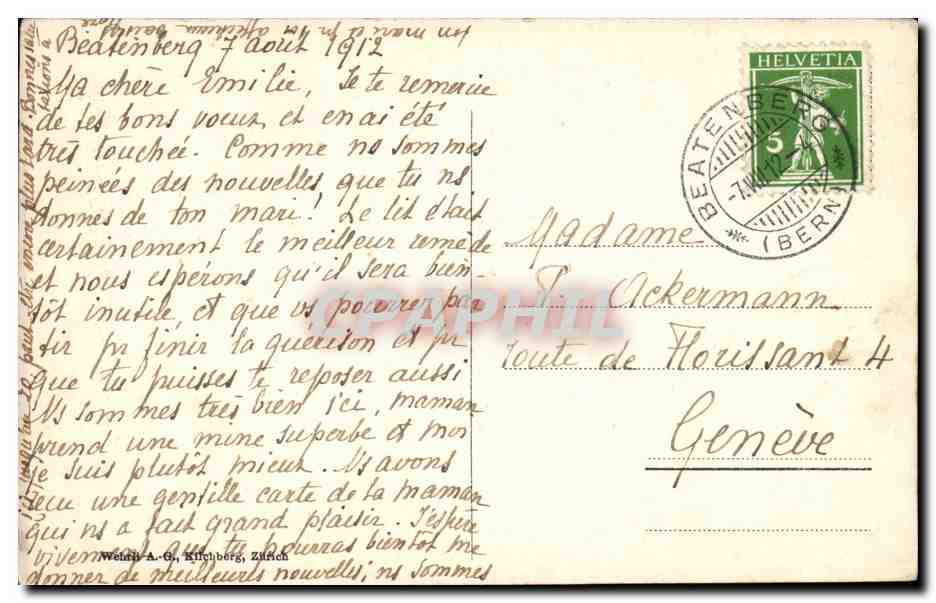 Beatenberg 7 août 1912
Ma chère Emilie, Je te remercie
de tes bons voeux et en ai été
très touchée. Comme ns sommes
peinées des nouvelles, que tu ns
donnes de ton mari! Le lit était
certainement le meilleur remède
et nous espérons qu'il sera bien-
tôt inutile et que vs pourrez par
tir pr finir la guérison et pr
que tu puisses te reposer aussi
Ns sommes très bien ici, maman
prend une mine superbe et moi
je suis plutôt mieux. Ns avons
reçu une gentille carte de ta maman
qui ns a fait grand plaisir. J'espère
vivement que tu pourras bientôt me
donner de meilleures nouvelles; ns sommes
ici jusqu'au 20 peut être encore plus tard. Bonnes salu
tations à
ton mari et pr toi affectueux baisers
HELVETIA
5
BEATENBERG
-7.VIII.12.-4
(BERN)
Madame
P. Ackermann
route de Florissant 4
Genève
Wehrli A.-G., Kilchberg, Zürich
CPAPHIL